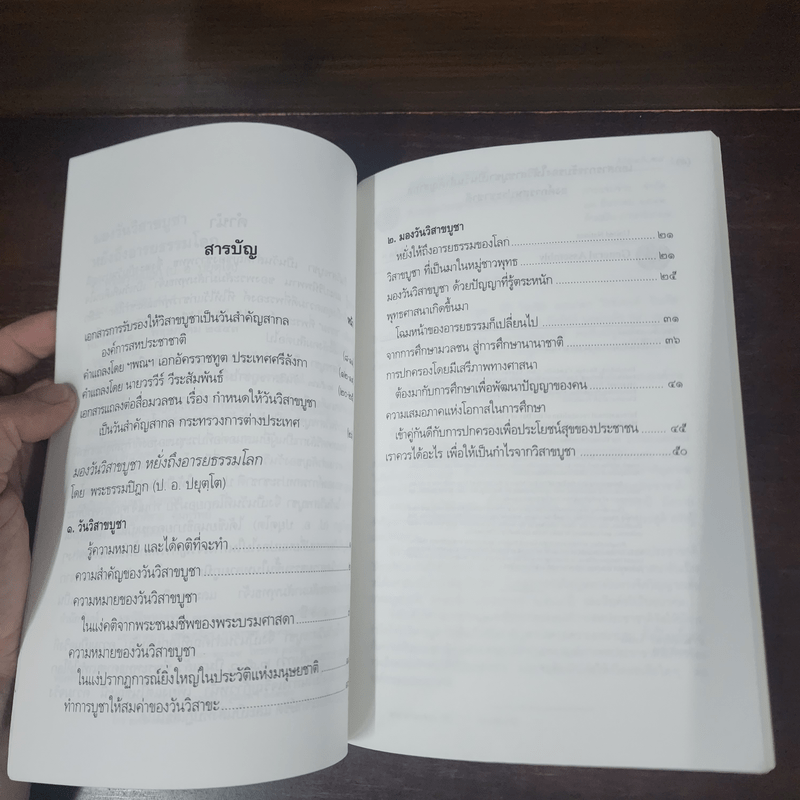 สารบัญ
เอกสารการรับรองให้วิสาขบูชาเป็นวันสำคัญสากล
องค์การสหประชาชาติ
คำแถลงโดย ฯพณฯ เอกอัครราชทูต ประเทศศรีลังกา
คำแถลงโดย นายวรวีร์ วีระสัมพันธ์
เอกสารแถลงต่อสื่อมวลชน เรื่อง กำหนดให้วันวิสาขบูชา
เป็นวันสำคัญสากล กระทรวงการต่างประเทศ
มองวันวิสาขบูชา หยั่งถึงอารยธรรมโลก
โดย พระธรรมปิฎก (ป. อ. ปยุตฺโต)
๑. วันวิสาขบูชา
รู้ความหมาย และได้คติที่จะทำ
ความสำคัญของวันวิสาขบูชา
ความหมายของวันวิสาขบูชา
ในแง่คติจากพระชนมชีพของพระบรมศาสดา
ความหมายของวันวิสาขบูชา
ในแง่ปรากฏการณ์ยิ่งใหญ่ในประวัติแห่งมนุษยชาติ
ทำการบูชาให้สมค่าของวันวิสาขะ
๒. มองวันวิสาขบูชา
หยั่งให้ถึงอารยธรรมของโลก ๒๑
วิสาขบูชา ที่เป็นมาในหมู่ชาวพุทธ ๒๑
มองวันวิสาขบูชา ด้วยปัญญาที่รู้ตระหนัก ๒๕
พุทธศาสนาเกิดขึ้นมา
โฉมหน้าของอารยธรรมก็เปลี่ยนไป ๓๑
จากการศึกษามวลชน สู่การศึกษานานาชาติ ๓๖
การปกครองโดยมีเสรีภาพทางศาสนา
ต้องมากับการศึกษาเพื่อพัฒนาปัญญาของคน ๔๑
ความเสมอภาคแห่งโอกาสในการศึกษา
เข้าคู่กันดีกับการปกครองเพื่อประโยชน์สุขของประชาชน ๔๕
เราควรได้อะไร เพื่อให้เป็นกำไรจากวิสาขบูชา ๕๐